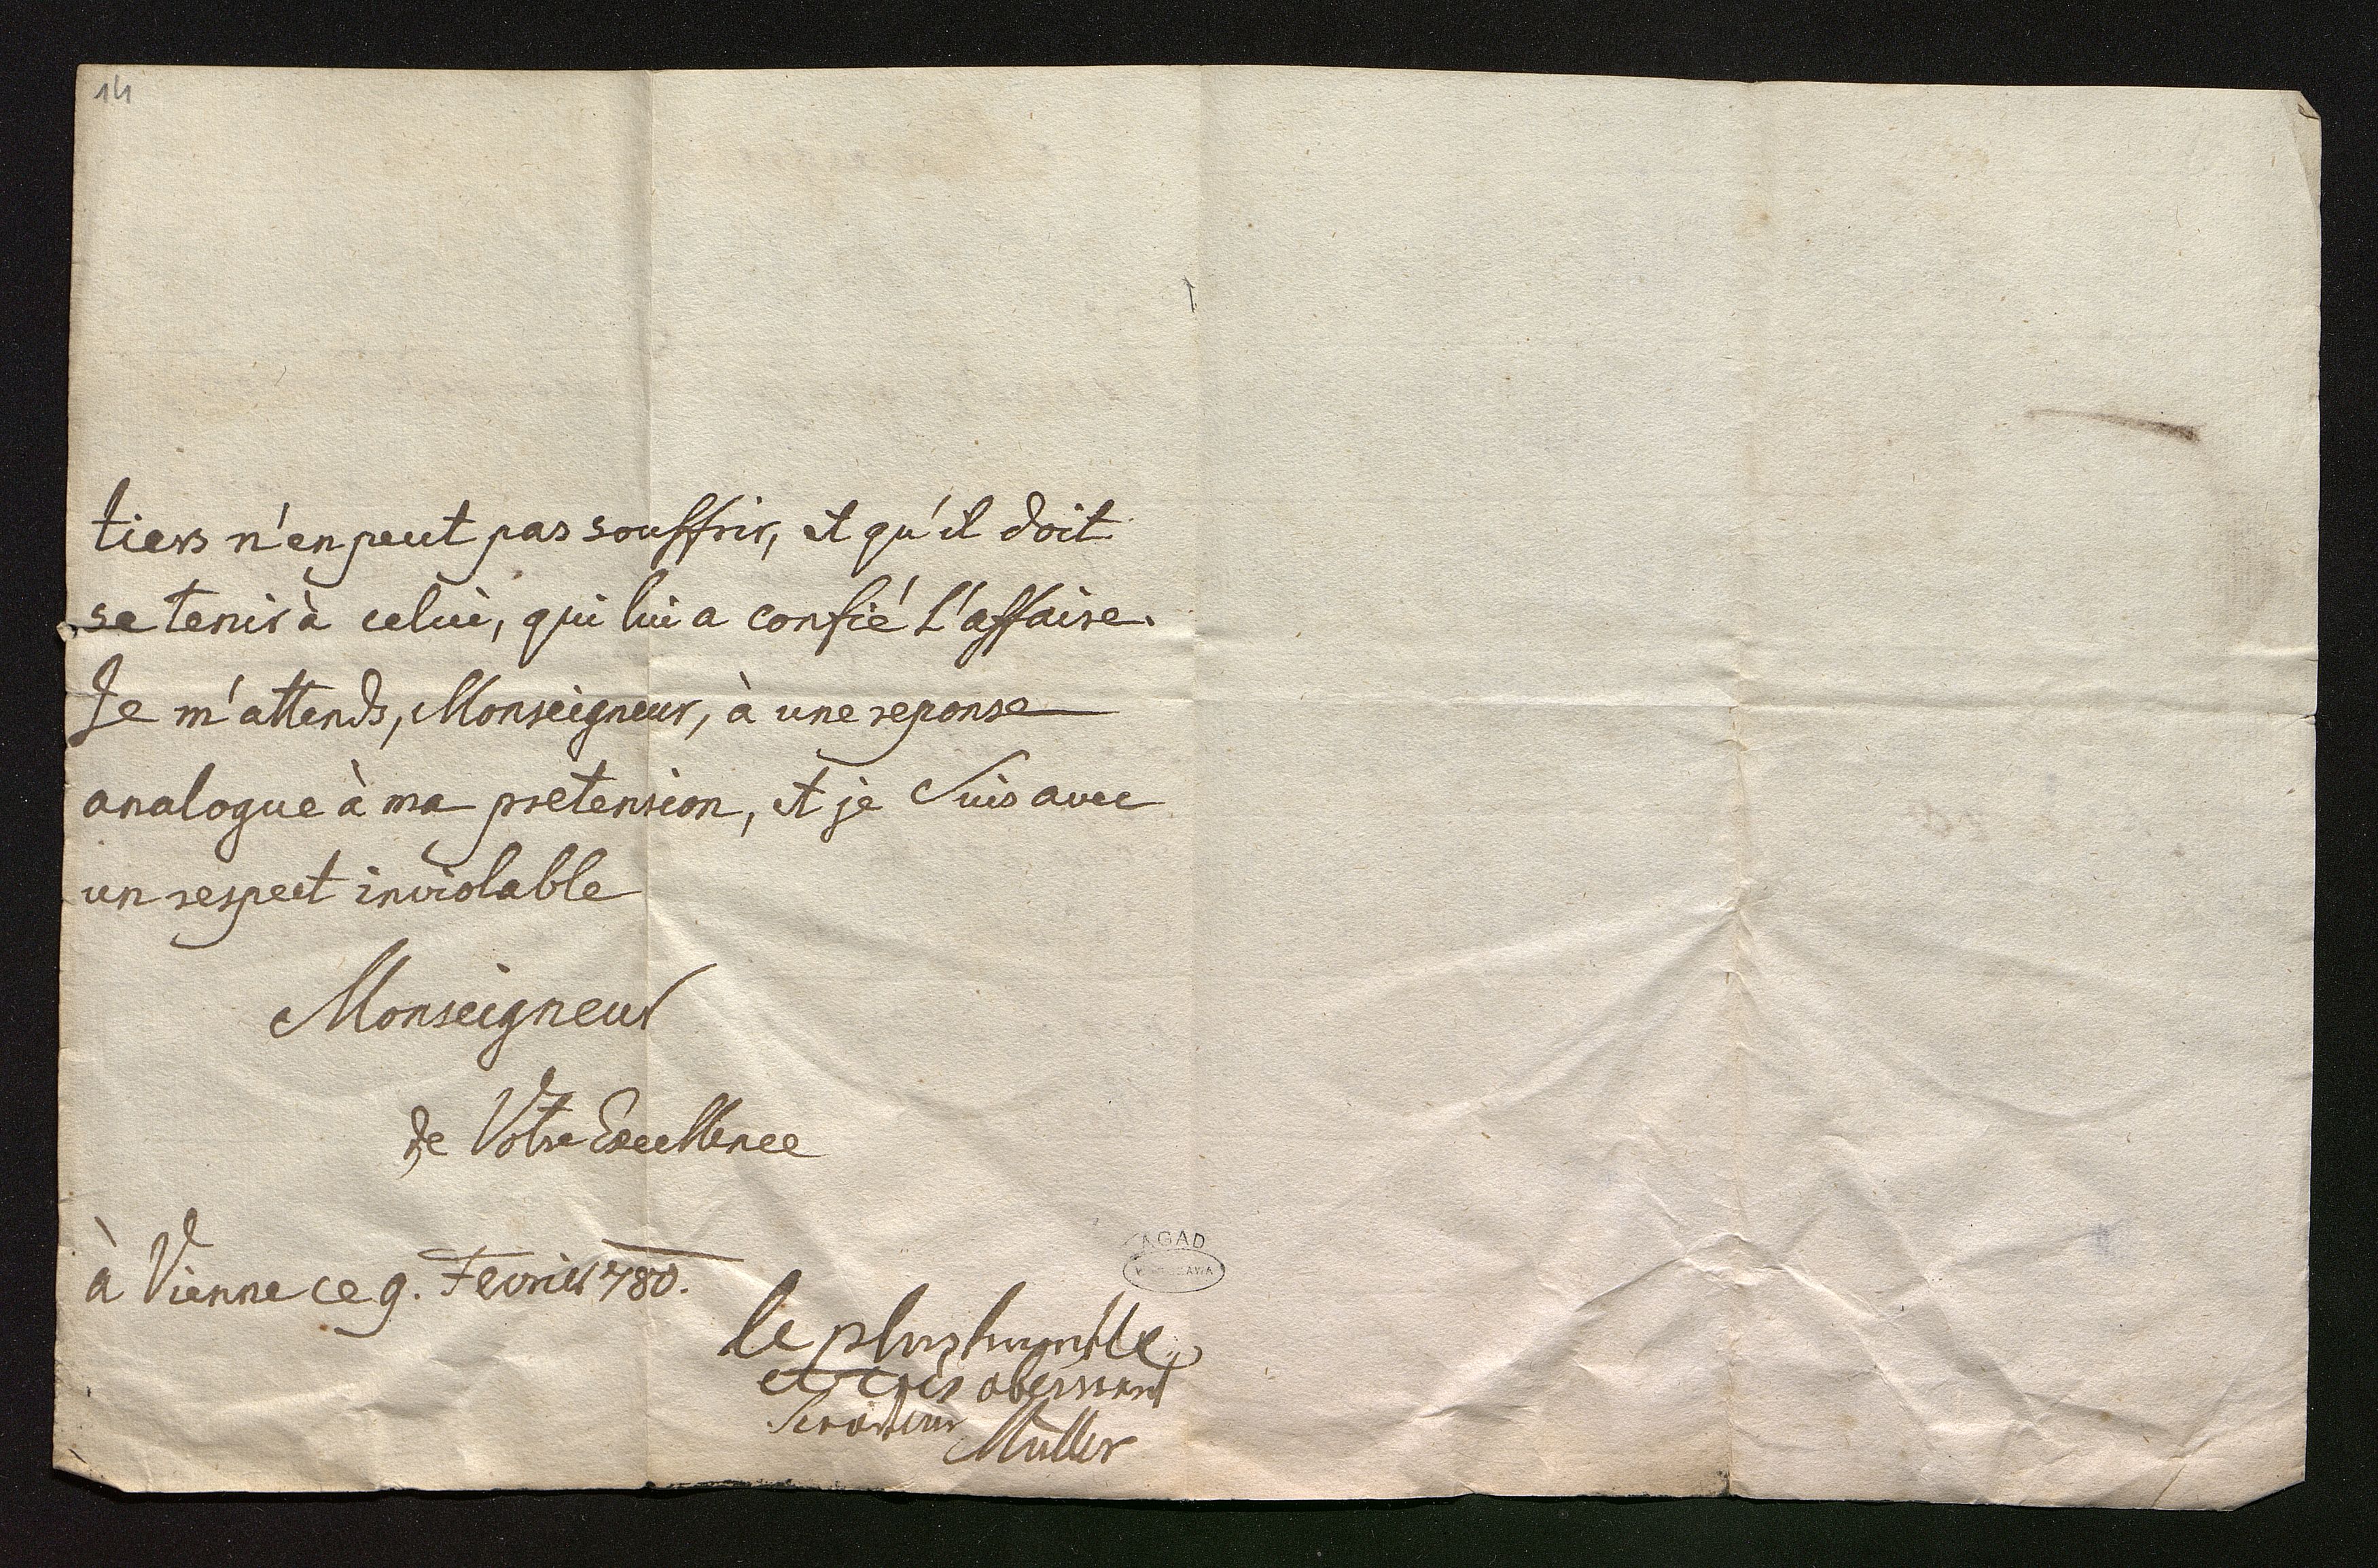 14
tiers n'en peut pas souffrir, et qu'il doit
se tenir à celui, qui lui a confié L'affaire.
Je m'attends, Monseigneur, à une reponse
analogue à ma pretension, et je Suis avec
un respect inviolable
Monseigneur
de Votre Excellence
à Vienne ce 9. Fevrier 780.
le plus humble
et très obeissant
Serviteur
Müller
AGAD
WARSZAWA